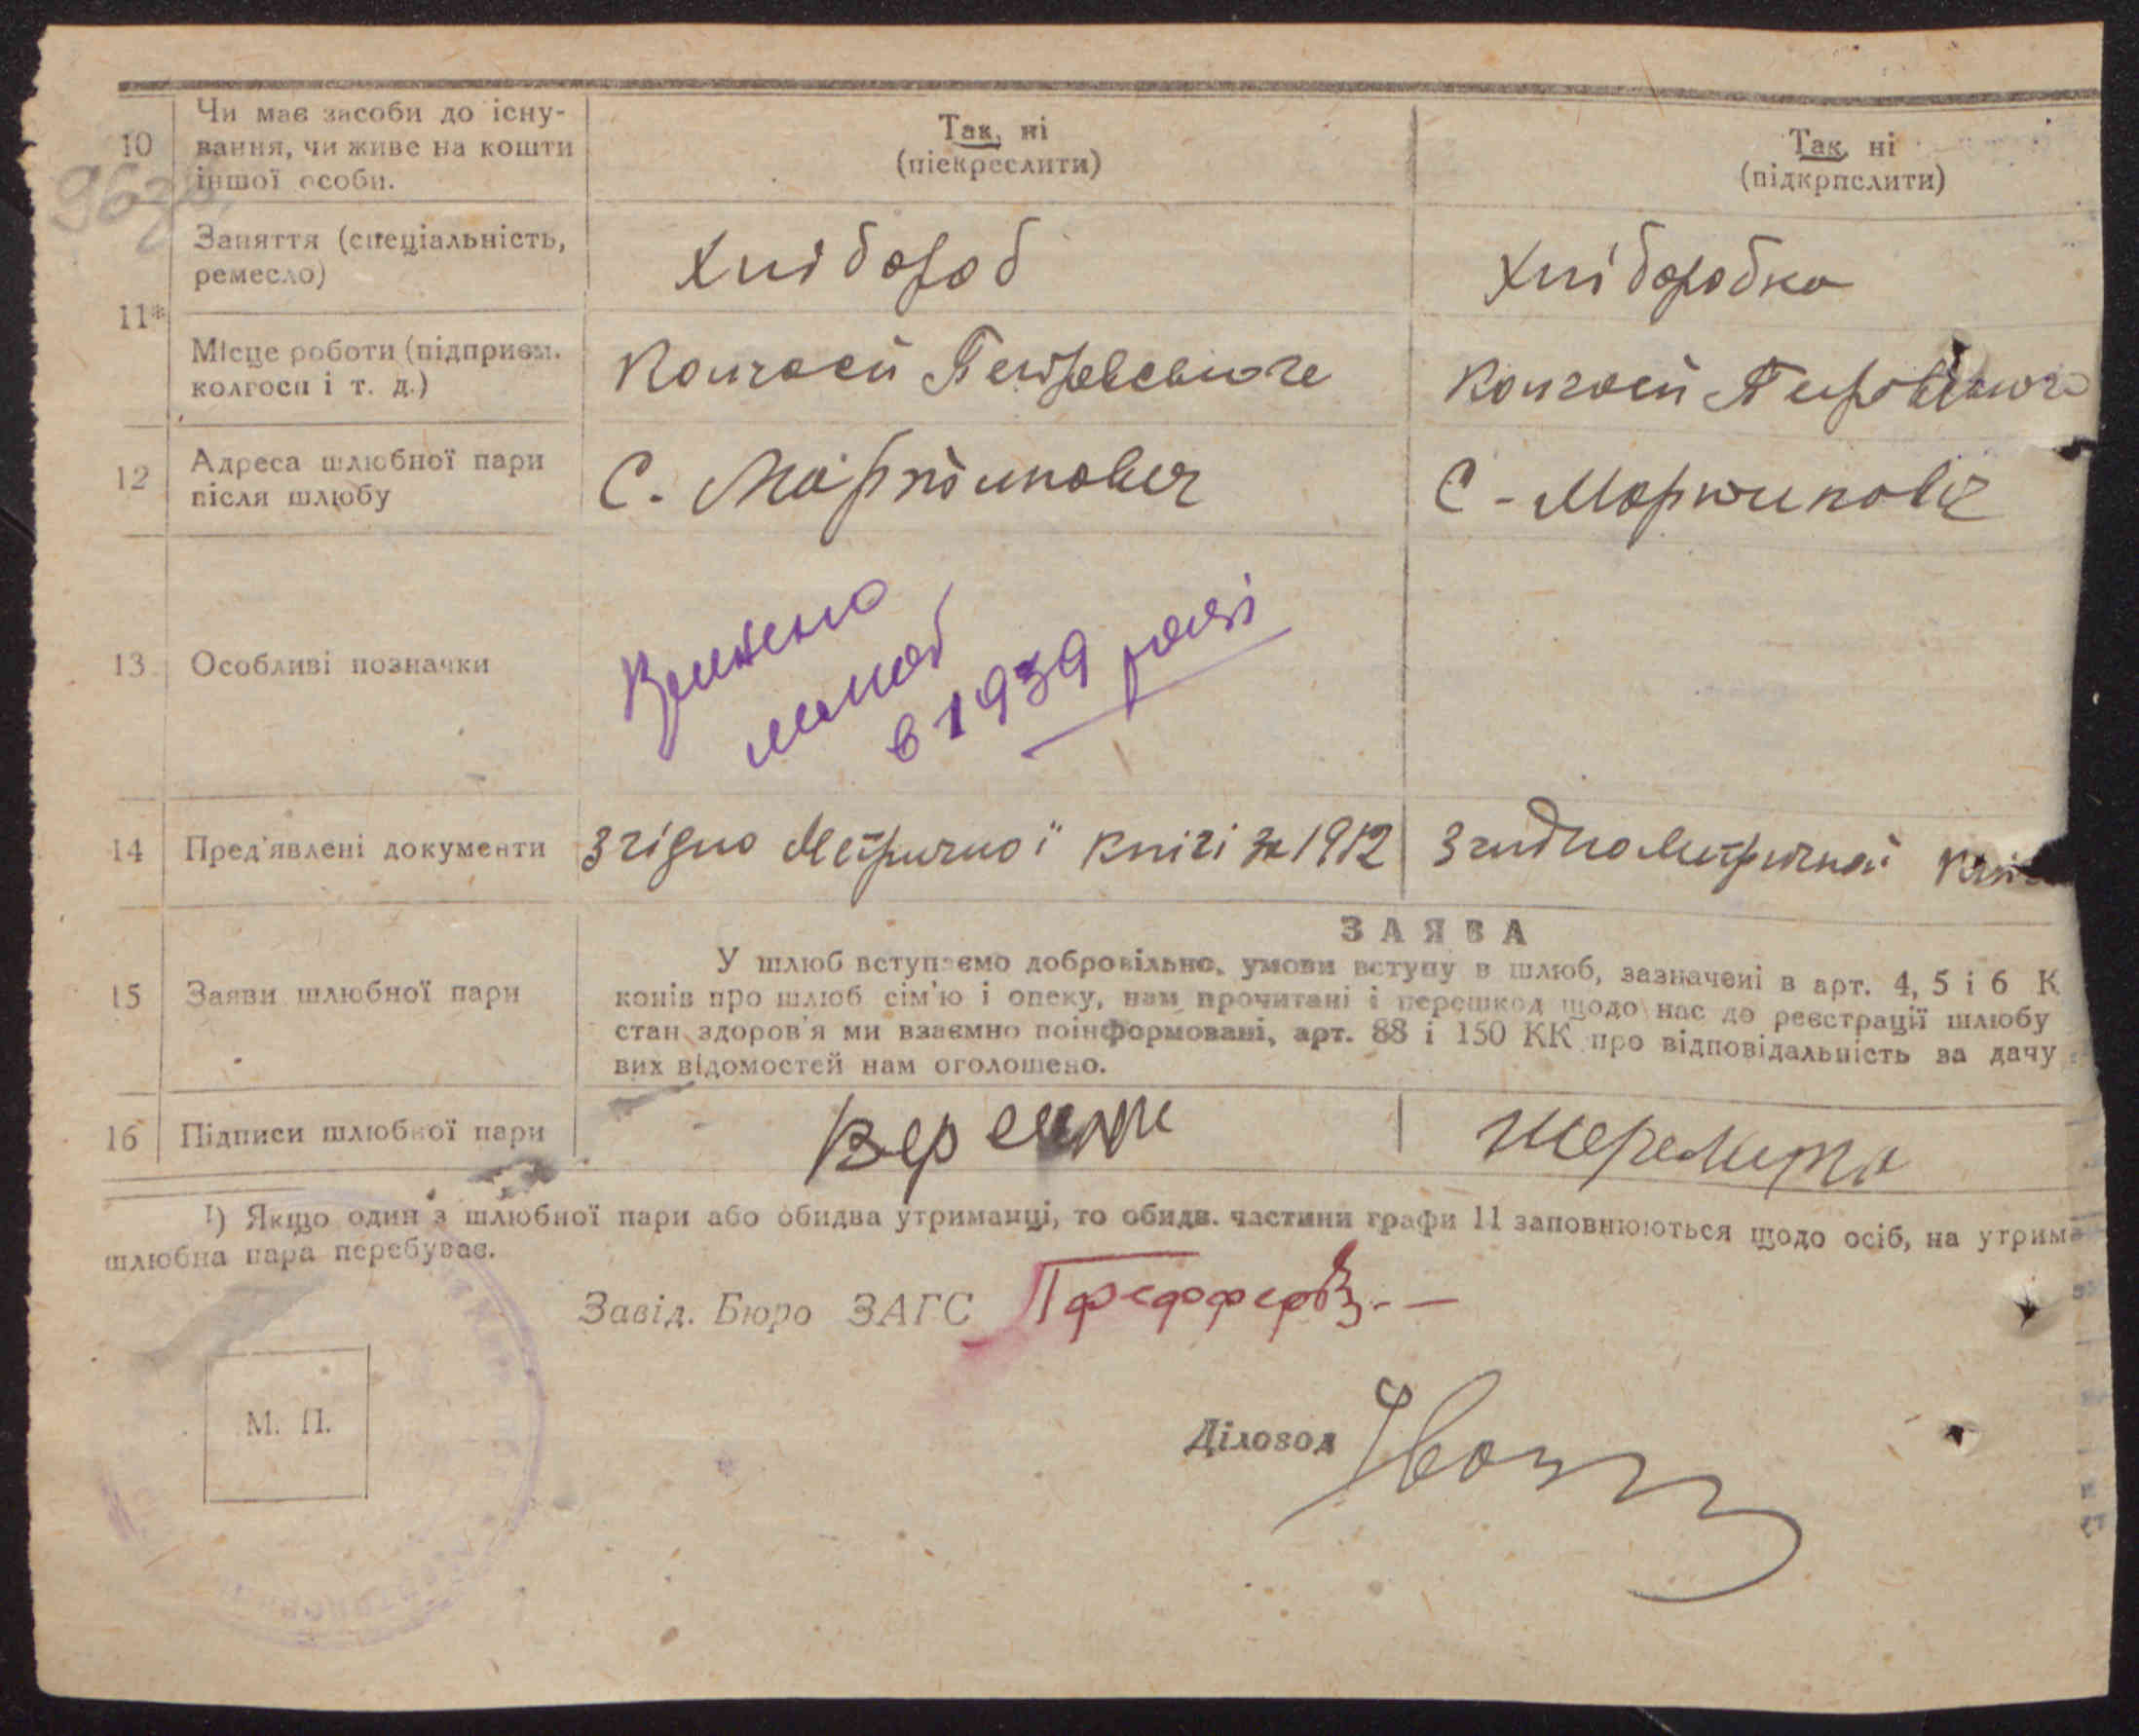 10
Чи має засоби до існу-
вання, чи живе на кошти
іншої особи.
Так, ні
(піекреслити)
Так, ні
(підкрпслити)
11*
Заняття (спеціальність,
ремесло)
Хлібороб
Хліборобка
Місце роботи (підприєм.
колгосп і т. д.)
Колгосп Петровського
Колгосп
12
Адреса шлюбної пари
після шлюбу
С. Мартинович
С - Мартиновіч
13
Особливі позначки
шлюб
в 1939 році
14
Пред'явлені документи
Згідно Метричної книгі за 1912
Згидно Метричной
15
Заяви шлюбної пари
ЗАЯВА
У шлюб вступаємо добровільно, умови вступу в шлюб, зазначені в арт. 4, 5 і 6 К
конів про шлюб сім'ю і опеку, нам прочитані і перешкод щодо нас до реєстрації шлюбу
стан здоров'я ми взаємно поінформовані, арт. 88 і 150 КК про відповідальність за дачу
вих відомостей нам оголошено.
16
Підписи шлюбної пари
Шеремета
1) Якщо один з шлюбної пари або обидва утриманці, то обидв. частини графи 11 заповнюються щодо осіб, на утрим
шлюбна пара перебуває.
Завід. Бюро ЗАГС
М. П.
Діловод